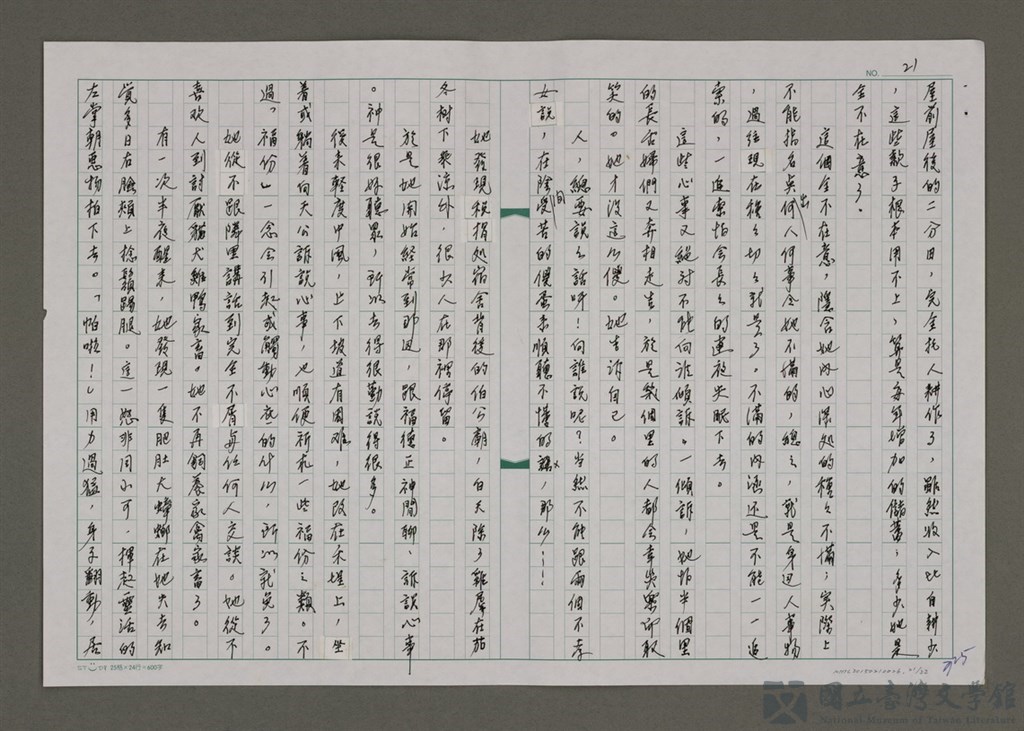 NO. 21
屋前屋後的二分田，完全托人耕作了，雖然收入比自耕少
，這些款子根本用不上，算是每年增加的儲蓄，多少她是
全不在意了。
這個全不在意，隱含她內心深處的種々不滿；實際上
不能指名與何人何事令她不滿的，總之，就是身邊人事物
出
，過往現在種々切々就是了。不滿的內涵還是不能一一追
索的，一追索怕會長々的連夜失眠下去。
這些心事又絕對不能向誰傾訴。一傾訴，她怕半個里
的長舌婦們又奔相走告，於是幾個里的人都會幸災樂禍取
笑的。她才沒這么傻。她告訴自己。
人，總要說々話呀！向誰說呢？當然不能跟兩個不孝
女說，在陰受苦的傻蛋未順聽不懂的，那么──
間
她發現稅捐処宿舍背後的伯公廟，白天除了雞羣在茄
冬樹下乘涼外，很少人在那裡停留。
於是她開始經常到那边，跟福德正神閒聊、訴說心事
。神是很好聽眾，所以去得很勤說得很多。
後來輕度中風，上下坡道有困难，她改在禾埕上，坐
着或躺着向天公訴說心事，也順便祈禱一些福份之類。不
過，「福份」一念会引起或觸動心底的什么，所以就免了。
她從不跟隣里講話到完全不屑與任何人交談。她從不
喜欢人到討厭貓犬雞鴨家畜。她不再飼養家禽家畜了。
有一次半夜醒來，她發現一隻肥肚大蟑螂在她失去知
覺多日右臉頰上捻鬚踢腿。這一怒非同小可，揮起靈活的
左掌朝惡物拍下去。「怕啦！」用力過猛，身子翻動，居
25格×24行=600字
725
國立臺灣文學館
National Museum of Taiwan Literature